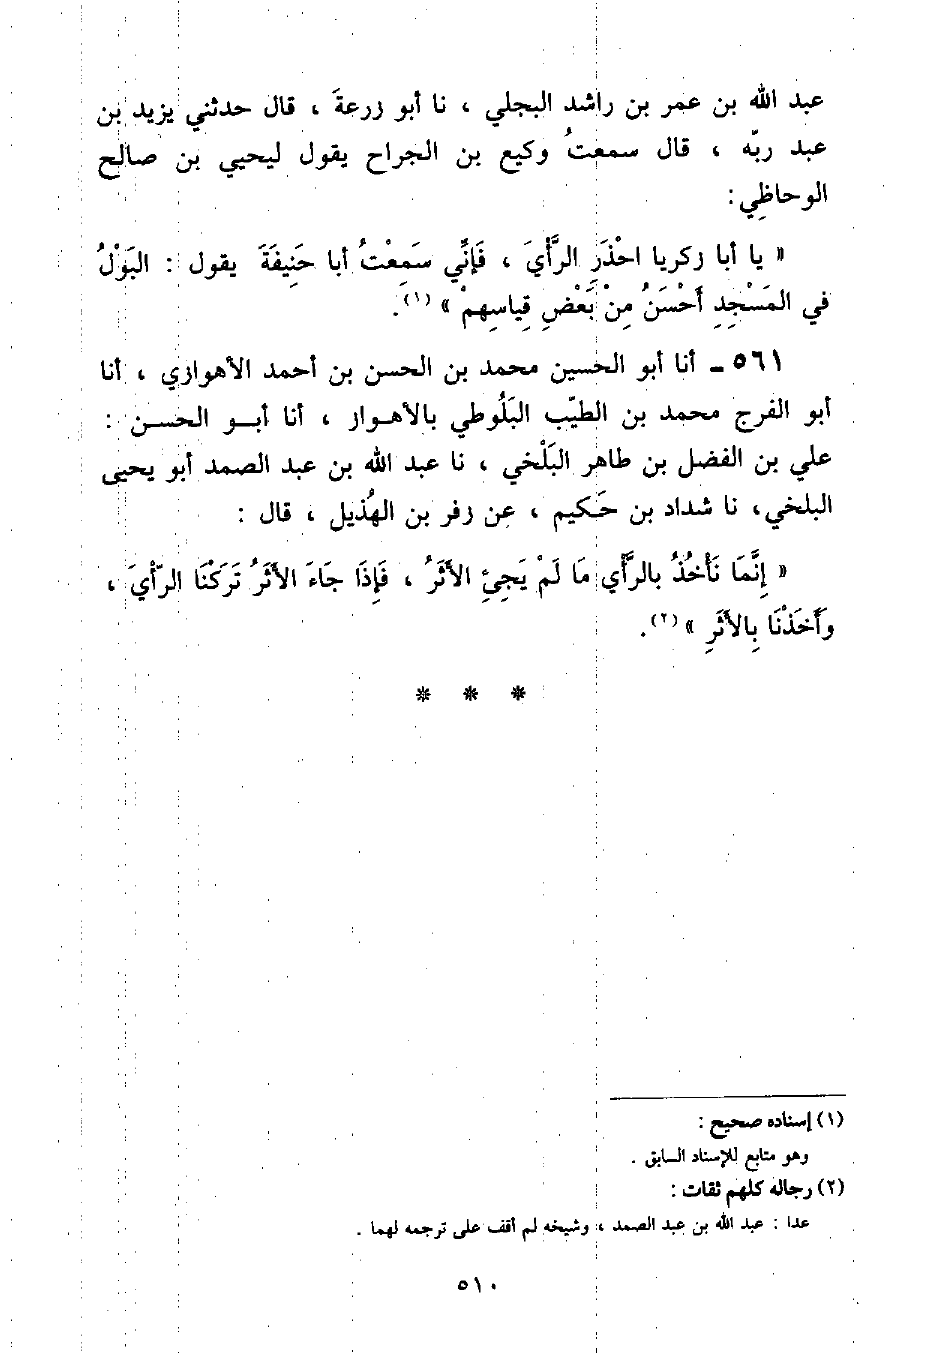 عبد الله بن عمر بن راشد البجلي ، نا أبو زرعةَ ، قال حدثني يزيد بن
عبد ربّه ، قال سمعتُ وكيع بن الجراح يقول ليحيي بن صالح
الوحاظِي :
« يا أبا زكريا احْذَرِ الرَّأْيَ ، فَإِنِّي سَمِعْتُ أبا حَنِيفَةَ يقول : البَوْلُ
في المَسْجِدِ أَحْسَنُ مِنْ بَعْضِ قِياسِهِمْ » (١).
٥٦١ ـ أنا أبو الحسين محمد بن الحسن بن أحمد الأهوازي ، أنا
أبو الفرج محمد بن الطيّب البَلُوطي بالأهواز ، أنا أبو الحسن :
علي بن الفضل بن طاهر البَلْخي ، نا عبد الله بن عبد الصمد أبو يحيى
البلخي، نا شداد بن حَكيم ، عن زفر بن الهُذيل ، قال :
« إِنَّمَا نَأْخُذُ بالرَّأْيِ مَا لَمْ يَجِئِ الأَثَرُ ، فَإِذَا جَاءَ الأَثَرُ تَرَكْنَا الرّأْيَ ،
وَأَخَذْنَا بِالأَثَرِ » (٢).
* * *
(١) إسناده صحيح :
وهو متابع للإسناد السابق .
(٢) رجاله كلهم ثقات :
عدا : عبد الله بن عبد الصمد ، وشيخه لم أقف على ترجمه لهما .
٥١٠